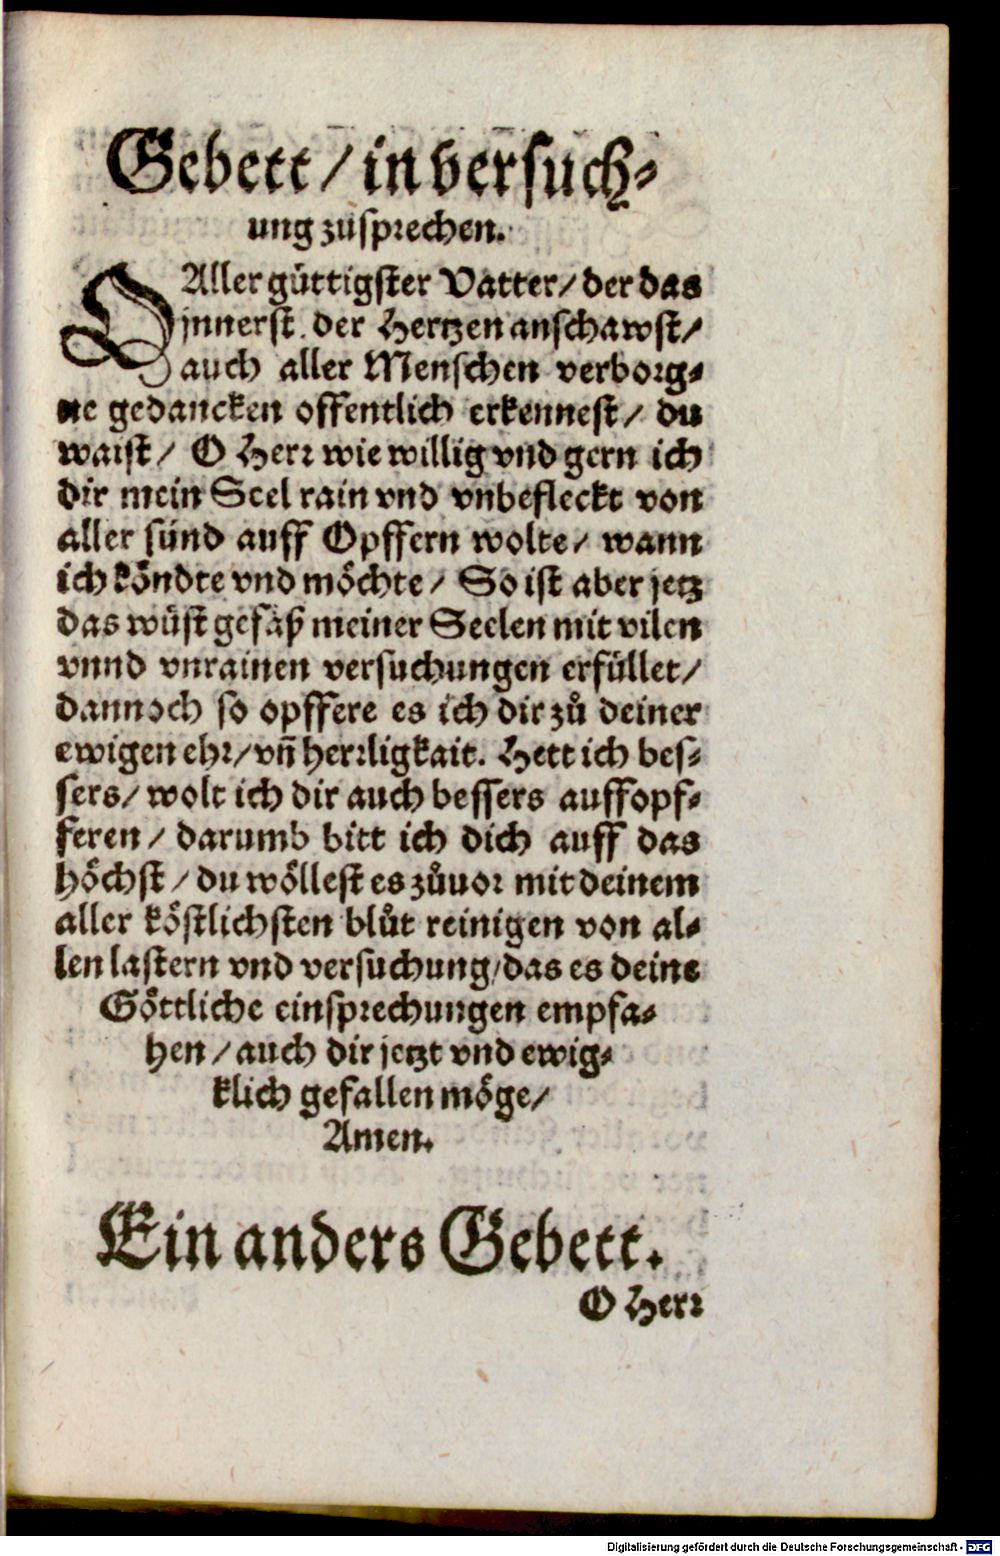 Gebett / in versuch⸗
ung zůsprechen.
O Aller güttigster Vatter / der das
jnnerst der Hertzen anschawst /
auch aller Menschen verborg⸗
ne gedancken offentlich erkennest / du
waist / O Herr wie willig vnd gern ich
dir mein Seel rain vnd vnbefleckt von
aller sünd auff Opffern wolte / wann
ich köndte vnd möchte / So ist aber jetz
das wüst gefäß meiner Seelen mit vilen
vnnd vnrainen versuchungen erfüllet /
dannoch so opffere es ich dir zů deiner
ewigen ehr / vñ herrligkait. Hett ich bes⸗
sers / wolt ich dir auch bessers auffopf⸗
feren / darumb bitt ich dich auff das
höchst / du wöllest es zůuor mit deinem
aller köstlichsten blůt reinigen von al⸗
len lastern vnd versuchung / das es deine
Göttliche einsprechungen empfa⸗
hen / auch dir jetzt vnd ewig⸗
klich gefallen möge /
Amen.
Ein anders Gebett.
O Herr
Digitalisierung gefördert durch die Deutsche Forschungsgemeinschaft - DFG